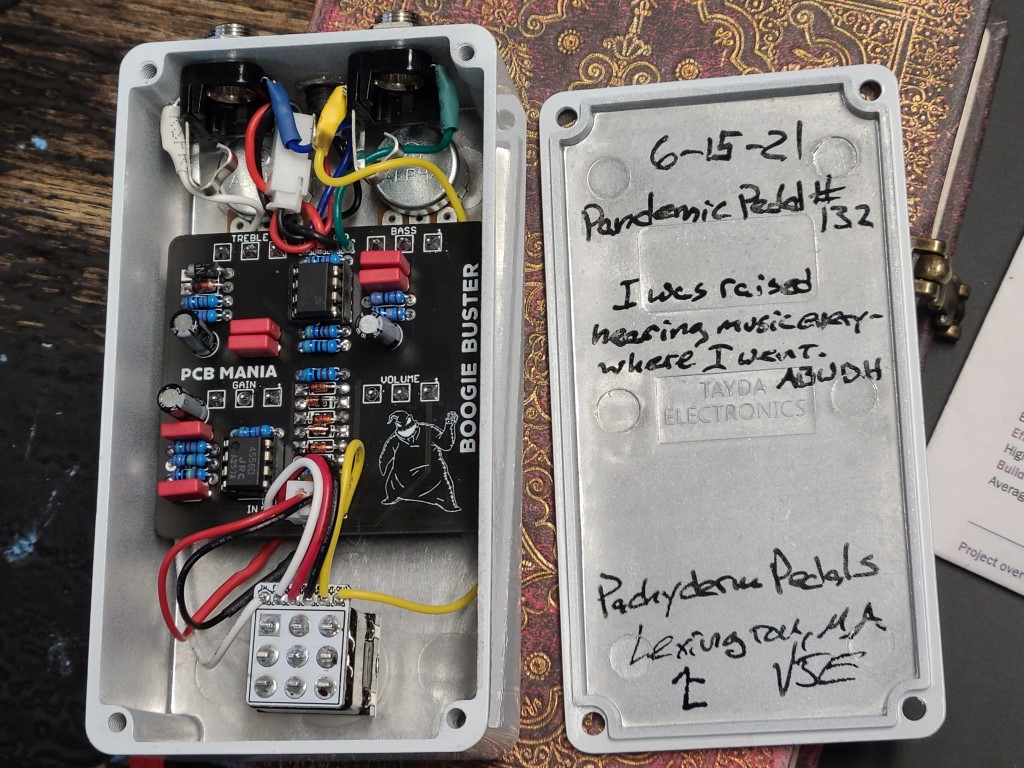 TREBLE
BASS
PCB MANIA
GAIN
VOLUME
BOOGIE BUSTER
4558D
JRC
IN
6-15-21
Pandemic Pedal #
132
I was raised
hearing music every-
where I went.
TAYDA
ELECTRONICS
Pachyderm Pedals
Lexington, MA
High
Build
Average
Project over